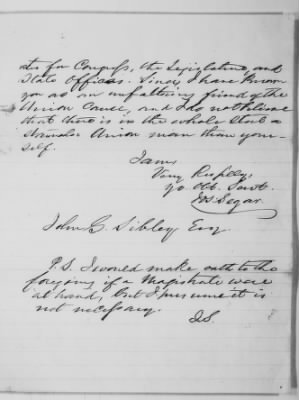 tes for Congress, the Legislature, and
State Offices. Since, I have known
you as an unfaltering friend of the
Union Cause, and I do not believe
that there is in the whole State a
stronger Union man than your-
self.
I am,
Very Resplly,
yr. Obt. Servt.
Jos Segar.
John G. Sibley Esq
P.S. I would make oath to the
forgoing if a Magistrate were
at hand, but I presume it is
not necessary.
J.S.